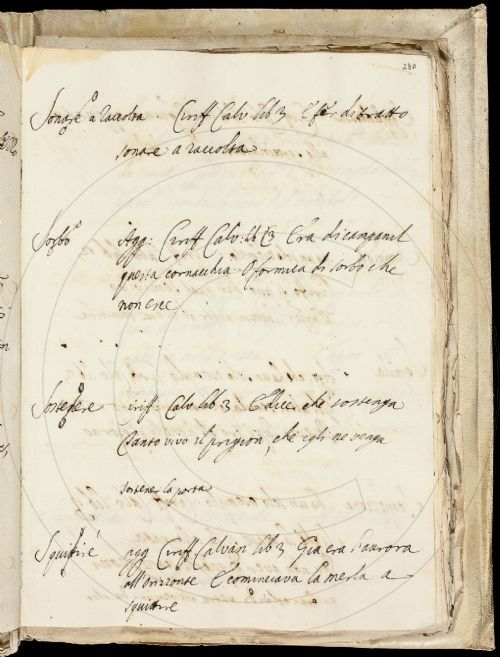 230
Sonare a raccolta. Ciriff Calv lib 3 E fer di tratto
sonare a raccolta
Sorbo Agg: Ciriff Calv: lib 3 Era di campanil
questa cornacchia O formica di sorbo che
non esce
Sostenere Ciriff Calv lib 3 E dice, che sostenga
tanto vivo il prigion, che egli ne venga
sostener la porta
Squittire agg Ciriff Calvan lib 3 Gia era l'aurora
all'orizzonte E cominciava la merla a
squittire